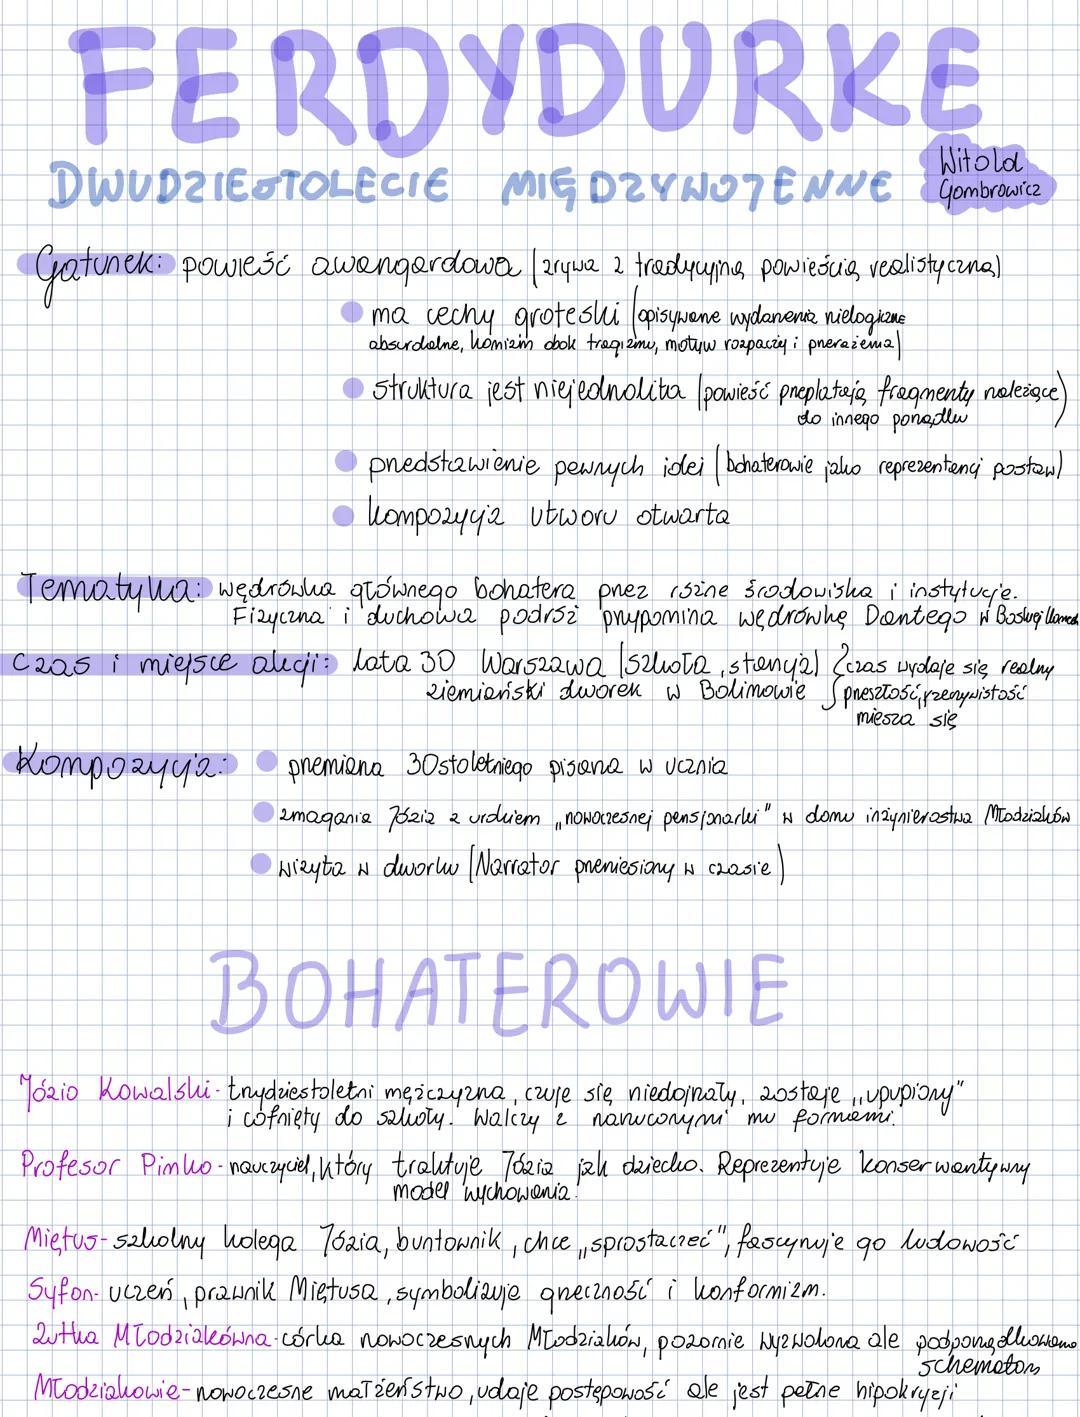 FERDYDURKE
DWUDZIESTOLECIE MIĘDZYWOJENNE
Witold
Gombrowicz
Gatunek: powieść awangardowa (zrywa z tradycyjną powieścią realistyczną)
ma cechy groteski (opisywane wydarzenia nielogiczne
absurdalne, komizm obok tragizmu, motyw rozpaczy i przerażenia)
struktura jest niejednolita (powieść przeplatają fragmenty należące)
do innego porządku
przedstawienie pewnych idei (bohaterowie jako reprezentanci postaw)
kompozycja utworu otwarta
Tematyka: wędrówka głównego bohatera przez różne środowiska i instytucje.
Fizyczna i duchowa podróż przypomina wędrówkę Dantego w Boskiej Komedii
Czas i miejsce akcji: lata 30 Warszawa (szkoła, stancja) {czas wydaje się realny
ziemiański dworek w Bolimowie przeszłość, rzeczywistość
miesza się
Kompozycja: przemiana 30stoletniego pisarza w ucznia
zmagania Józia z urokiem „nowoczesnej pensjonarki" w domu inżynierostwa Młodziaków
wizyta w dworku (Narrator przeniesiony w czasie)
BOHATEROWIE
Józio Kowalski - trzydziestoletni mężczyzna, czuje się niedojrzały, zostaje „upupiony"
i cofnięty do szkoły. Walczy z narzuconymi mu formami.
Profesor Pimko - nauczyciel, który traktuje Józia jak dziecko. Reprezentuje konserwantywny
model wychowania.
Miętus - szkolny kolega Józia, buntownik, chce „sprostaczeć", fascynuje go ludowość
Syfon - uczeń, prawnik Miętusa, symbolizuje grzeczność i konformizm.
Zutka Młodziakówna - córka nowoczesnych Młodziaków, pozornie wyzwolona ale podporządkowana
schematom
Młodziakowie - nowoczesne małżeństwo, udaje postępowość ale jest pełne hipokryzji